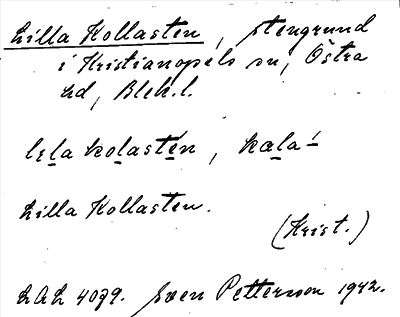 Lilla Kollasten, stengrund
i Kristianopels sn, Östra
hd, Blek.l.
lɛla kolastén, kæla-́
Lilla Kollasten.
(Krist.)
LAL 4079. Sven Petterson 1942.